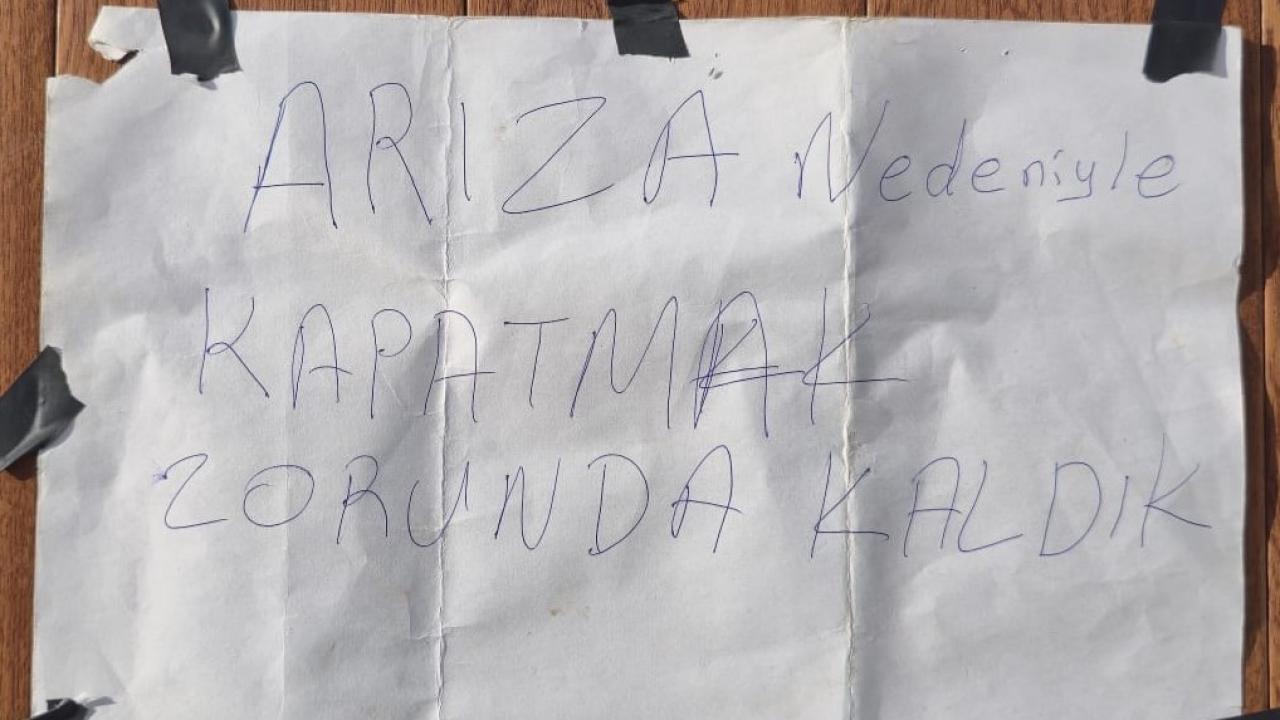 ARIZA Nedeniyle
KAPATMAK
ZORUNDA KALDIK